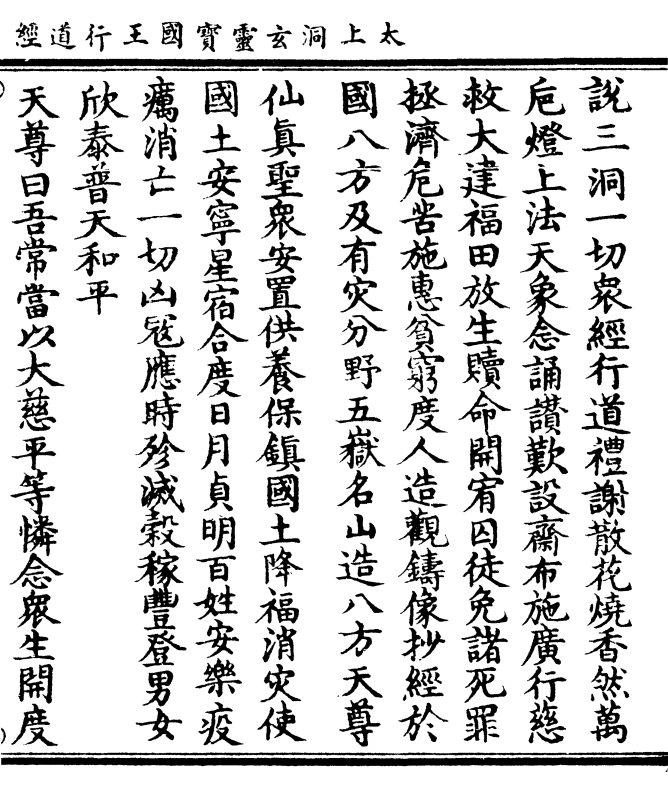 太上洞玄靈寶國王行道經
說三洞一切衆經行道禮謝散花燒香然萬
巵燈上法天象念誦讃歎設齋布施廣行慈
救大建福田放生贖命開宥囚徒免諸死罪
拯濟危苦施惠貧窮度人造觀鑄像抄經於
國八方及有灾分野五嶽名山造八方天尊
仙真聖衆安置供養保鎮國土降福消灾使
國土安寧星宿合度日月貞明百姓安樂疫
癘消亡一切凶寇應時殄滅穀稼豐登男女
欣泰普天和平
天尊曰吾常當以大慈平等憐念衆生開度